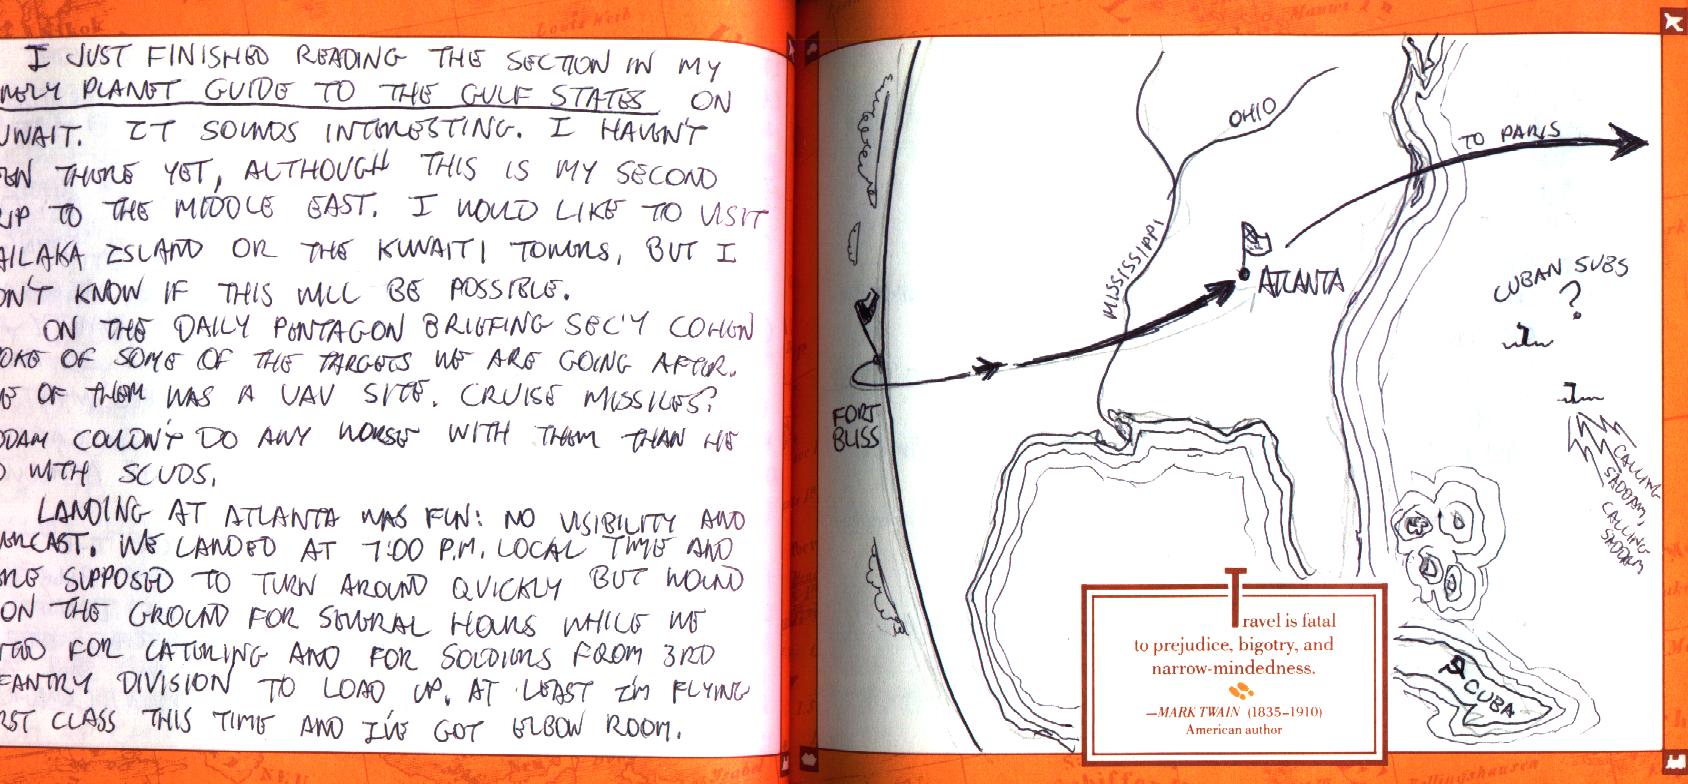 I JUST FINISHED READING THE SECTION IN MY
NELY PLANET GUIDE TO THE GULF STATES ON
UWAIT. IT SOUNDS INTERESTING. I HAVEN'T
EN THERE YET, ALTHOUGH THIS IS MY SECOND
RIP TO THE MIDDLE EAST. I WOULD LIKE TO VISIT
AILAKA ISLAND OR THE KUWAITI TOWERS, BUT I
ON'T KNOW IF THIS WILL BE POSSIBLE.
ON THE DAILY PENTAGON BRIEFING SEC'Y COHEN
OKE OF SOME OF THE TARGETS WE ARE GOING AFTER.
E OF THEM WAS A UAV SITE. CRUISE MISSILES?
DDAM COULDN'T DO ANY WORSE WITH THEM THAN HE
D WITH SCUDS.
LANDING AT ATLANTA WAS FUN: NO VISIBILITY AND
ERCAST. WE LANDED AT 7:00 P.M. LOCAL TIME AND
RE SUPPOSED TO TURN AROUND QUICKLY BUT WOUND
ON THE GROUND FOR SEVERAL HOURS WHILE WE
ITED FOR CATERING AND FOR SOLDIERS FROM 3RD
FANTRY DIVISION TO LOAD UP. AT LEAST I'M FLYING
RST CLASS THIS TIME AND I'VE GOT ELBOW ROOM.
OHIO
TO PARIS
MISSISSIPPI
ATLANTA
CUBAN SUBS
?
FORT
BLISS
CALLING
SADDAM,
CALLING
SADDAM
CUBA
Travel is fatal
to prejudice, bigotry, and
narrow-mindedness.
—MARK TWAIN (1835–1910)
American author